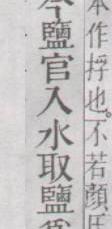 本作捋也。不若顏
鹽官入水取鹽